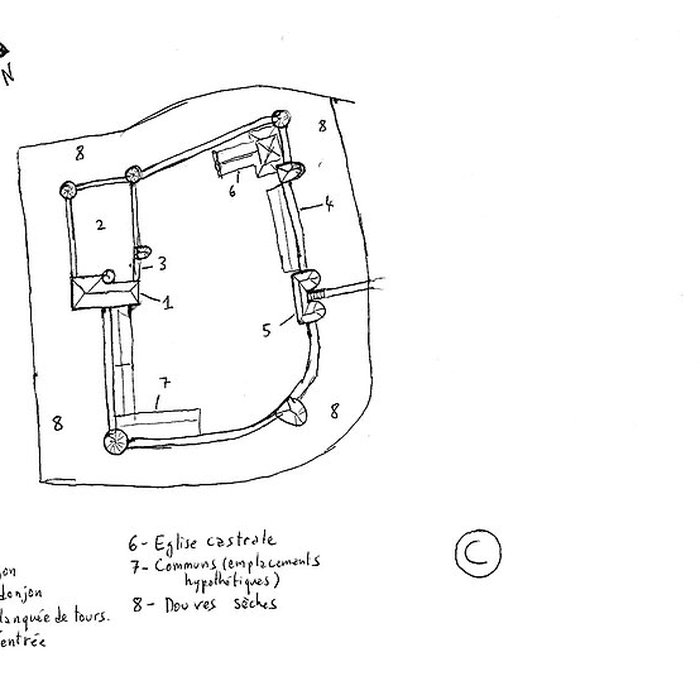 N
8
8
6
4
2
3
1
5
7
8
8
donjon
lanquée de tours.
entrée
6- Eglise castrale
7- Communs (emplacements
hypothétiques)
8- Douves sèches
C